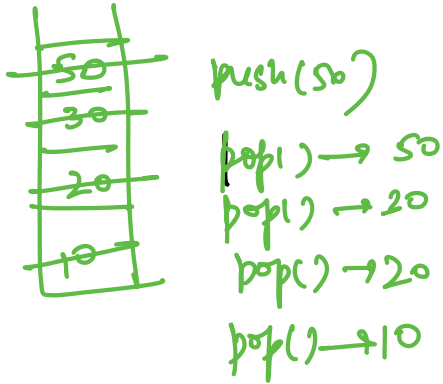 50
30
20
10
push(50)
pop() → 50
pop() → 20
pop() → 20
pop() → 10